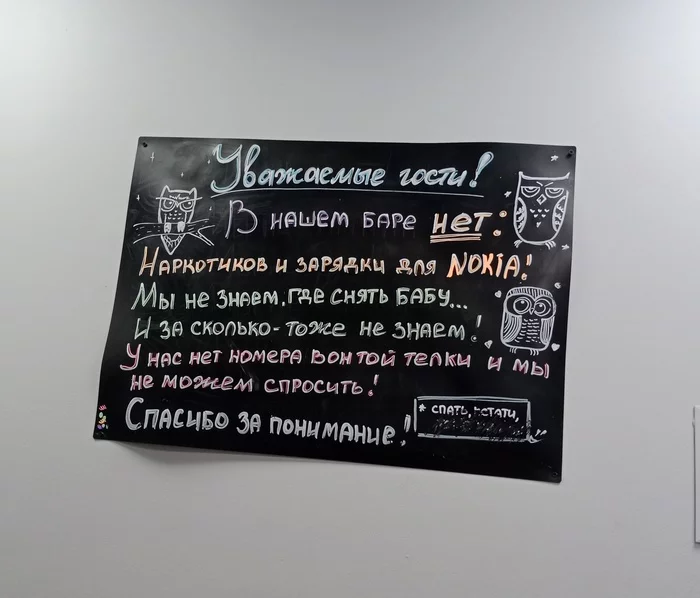 Уважаемые гости!
В нашем баре нет:
Наркотиков и зарядки для NOKIA!
Мы не знаем, где снять бабу...
И за сколько - тоже не знаем!
У нас нет номера вон той телки и мы
не можем спросить!
Спасибо за понимание!
* спать, кстати,